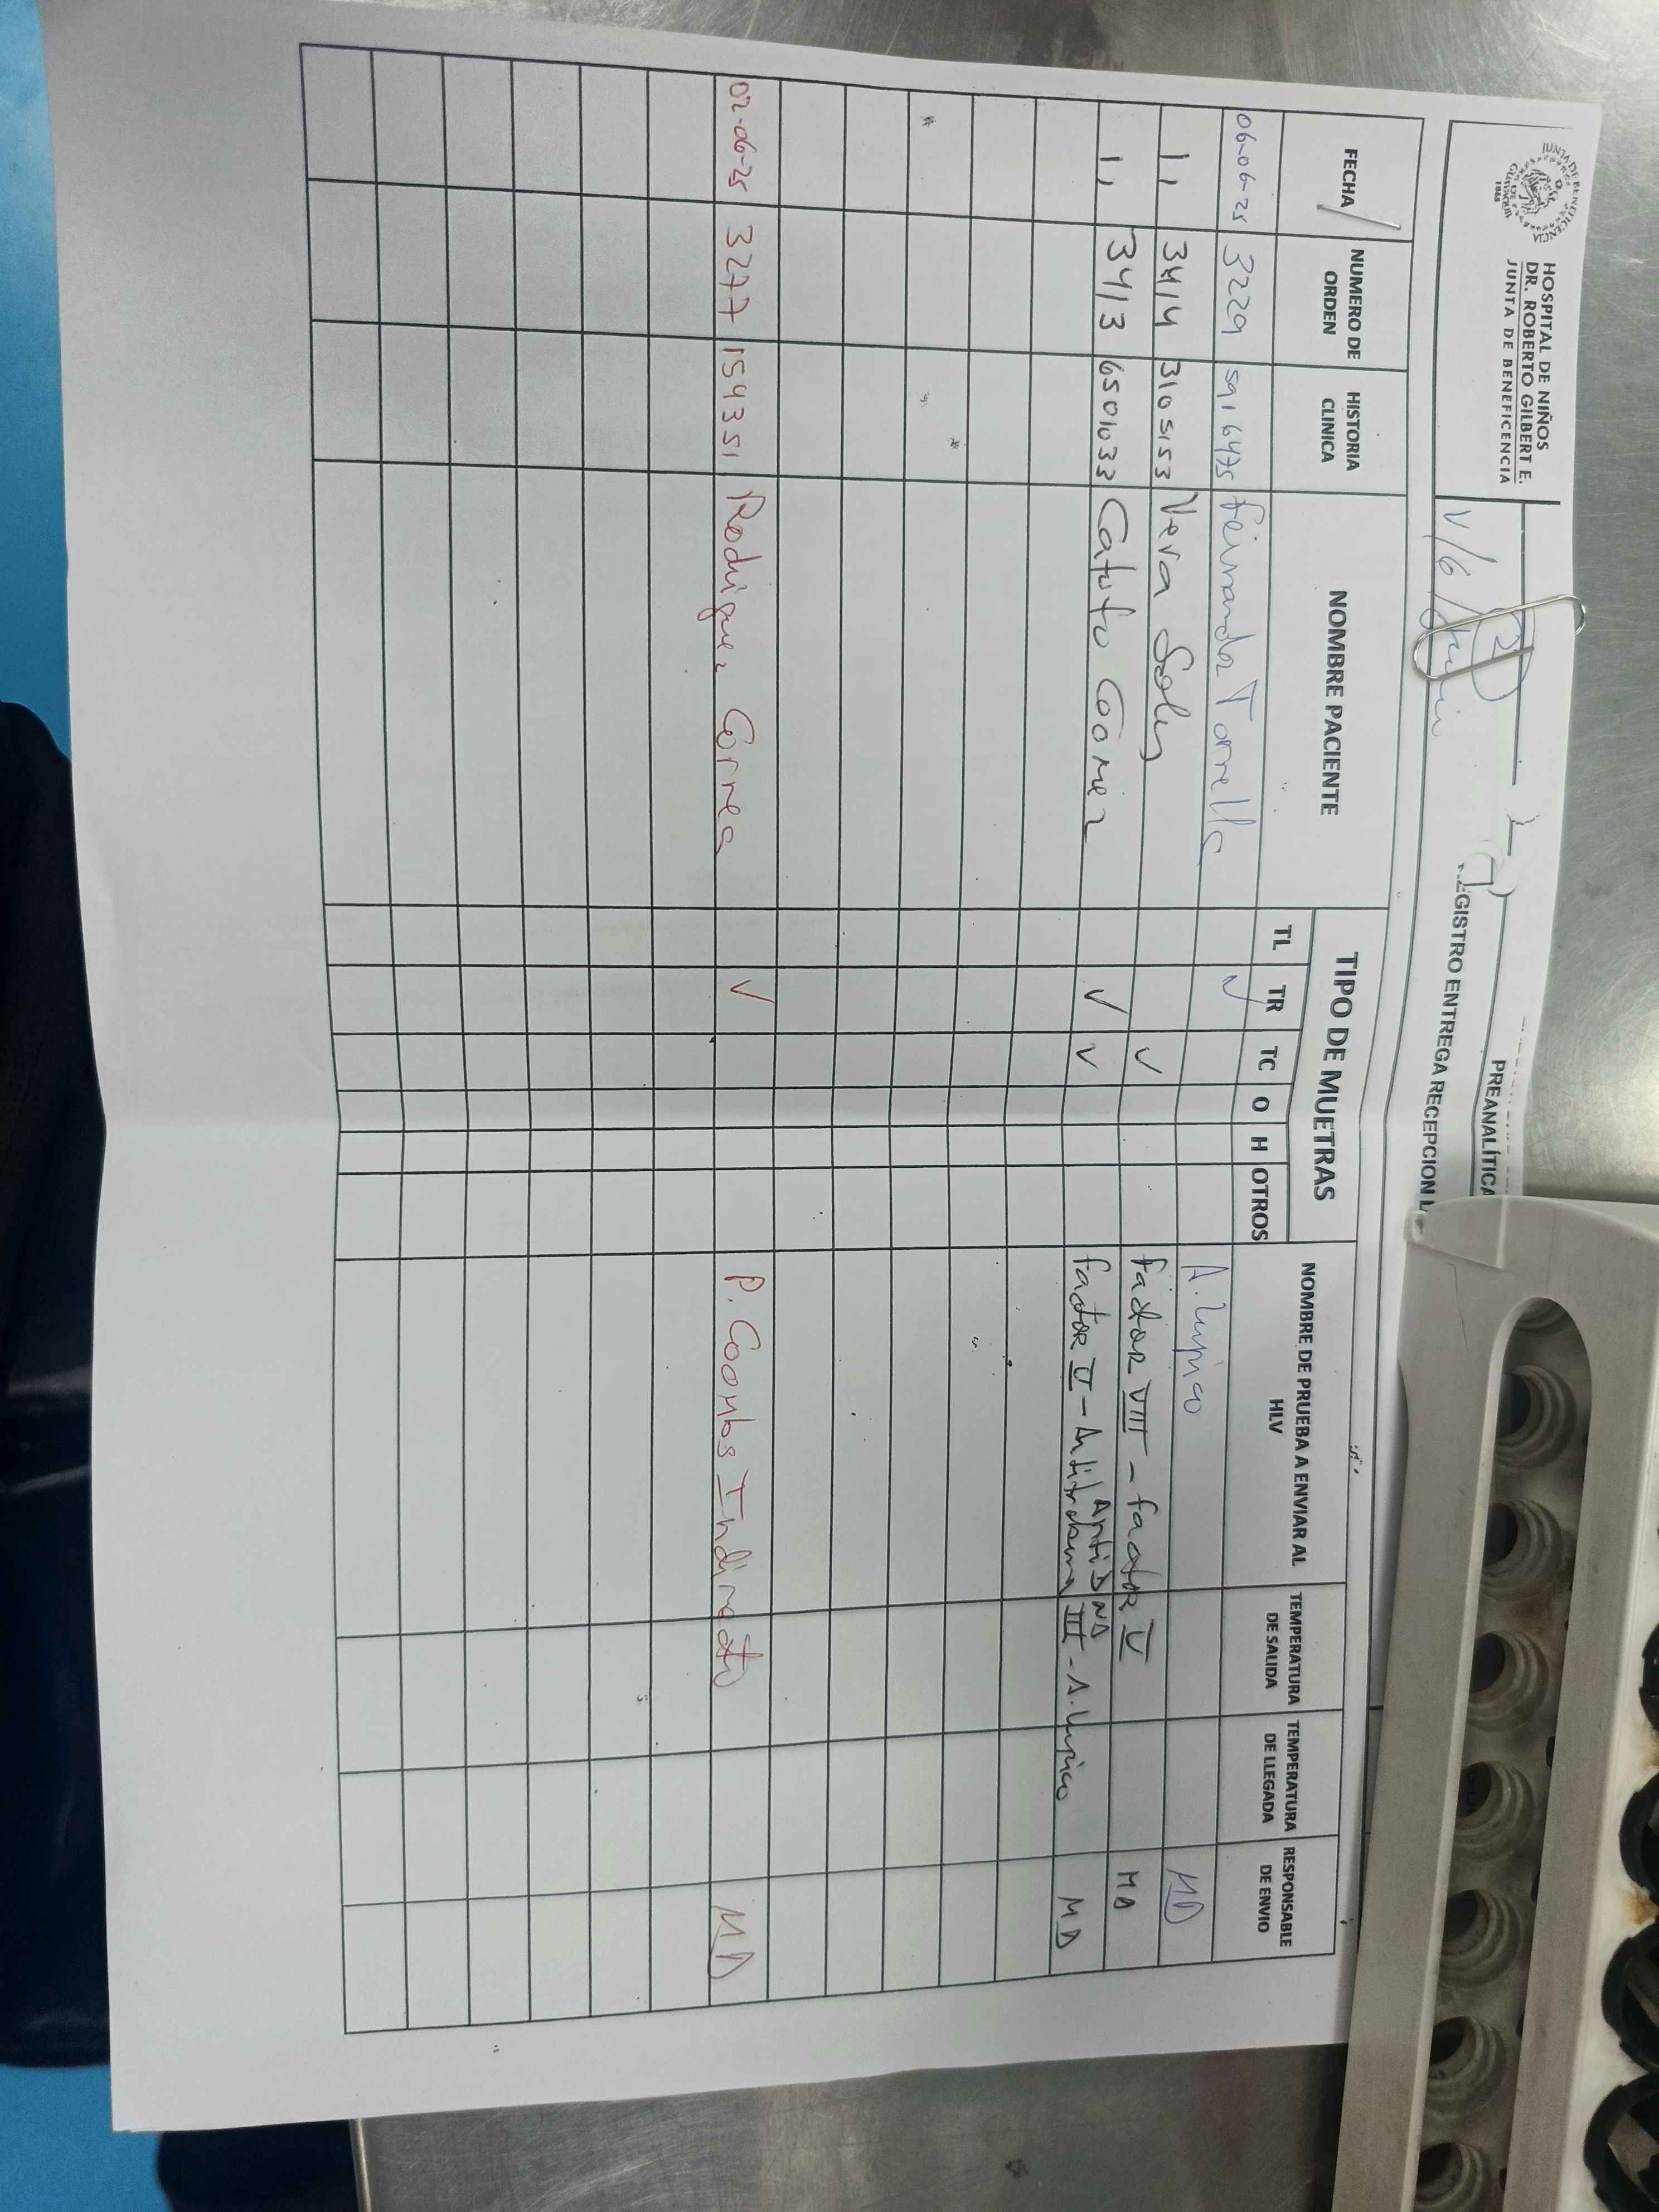 HOSPITAL DE NIÑOS
DR. ROBERTO GILBERT E.
JUNTA DE BENEFICENCIA
PREANALÍTICA
REGISTRO ENTREGA RECEPCION
FECHA
NUMERO DE ORDEN
HISTORIA CLINICA
NOMBRE PACIENTE
TIPO DE MUETRAS
TL TR TC O H OTROS
NOMBRE DE PRUEBA A ENVIAR AL HLV
TEMPERATURA DE SALIDA
TEMPERATURA DE LLEGADA
RESPONSABLE DE ENVIO
06-06-25 3229 5916475 Torrella ✓ A. Lupico MD
11 3414 3105153 Vera Soly ✓ factor VIII - factor V MD
11 3413 6501033 Catuto ✓ ✓ factor V - Antitrobina III - A. Lupico MD
02-06-25 3277 154351 Rodriguez Correa ✓ P. Coombs Indirecto MD